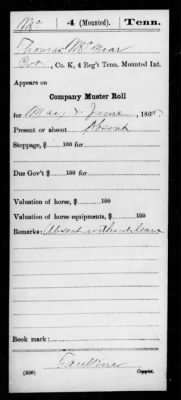 Mc 4 (Mounted). Tenn.
Thomas McMear
Pvt, Co. K, 4 Reg't Tenn. Mounted Inf.
Appears on
Company Muster Roll
for May & June, 1865.
Present or absent Absent
Stoppage, $ 100 for
Due Gov't $ 100 for
Valuation of horse, $ 100
Valuation of horse equipments, $ 100
Remarks: Absent without leave
Book mark:
Faulkner
(358) Copyist.